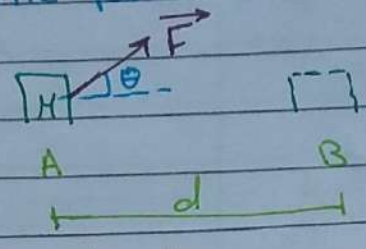 F
θ
M
A B
d